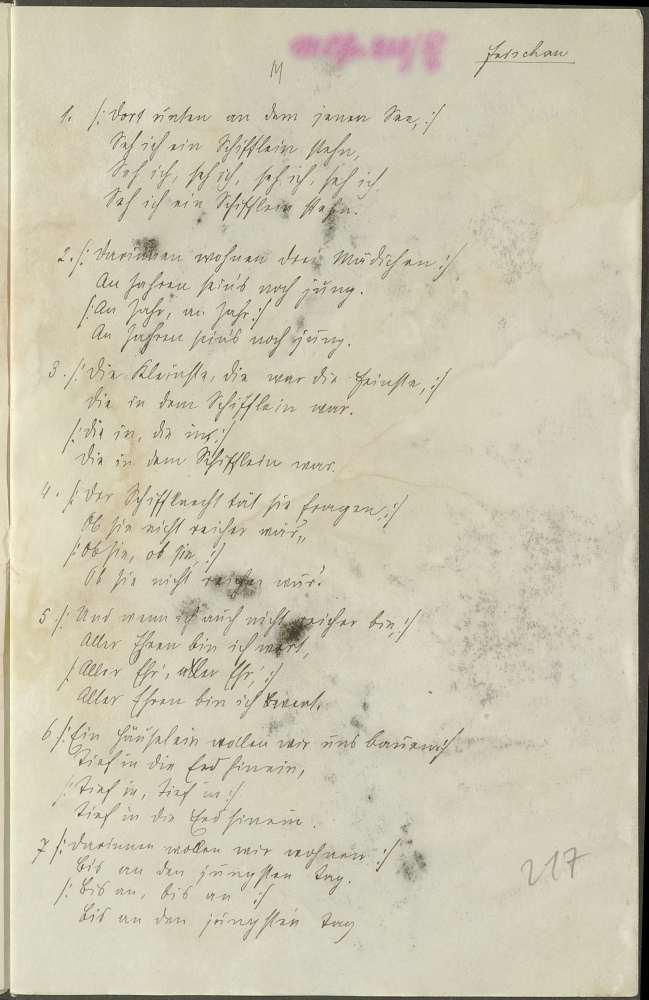 Frischau
M
1. /: Dort unten an dem jenen See, :/
Seh ich ein Schifflein stehn,
Seh ich, seh ich, seh ich, seh ich
Seh ich ein Schifflein stehn.
2. /: Darinnen wohnen drei Mädichen :/
An Jahren sein's noch jung.
/: An Jahr, an Jahr :/
An Jahren sein's noch jung.
3. /: Die Kleinste, die war die Feinste, :/
Die in dem Schifflein war.
/: die in, die in, :/
Die in dem Schifflein war.
4. /: Der Schiffknecht tät sie fragen, :/
Ob sie nicht reicher wär',
/: Ob sie, ob sie, :/
Ob sie nicht reicher wär'.
5 /: Und wenn ich auch nicht reicher bin, :/
Aller Ehren bin ich wert,
/: Aller Ehr', aller Ehr', :/
Aller Ehren bin ich wert.
6 /: Ein Häuselein wollen wir uns bauen :/
Tief in die Erd hinein,
/: Tief in, tief in :/
Tief in die Erd hinein.
7 /: Darinnen wollen wir wohnen :/
Bis an den jüngsten Tag.
/: Bis an, bis an :/
Bis an den jüngsten Tag
217